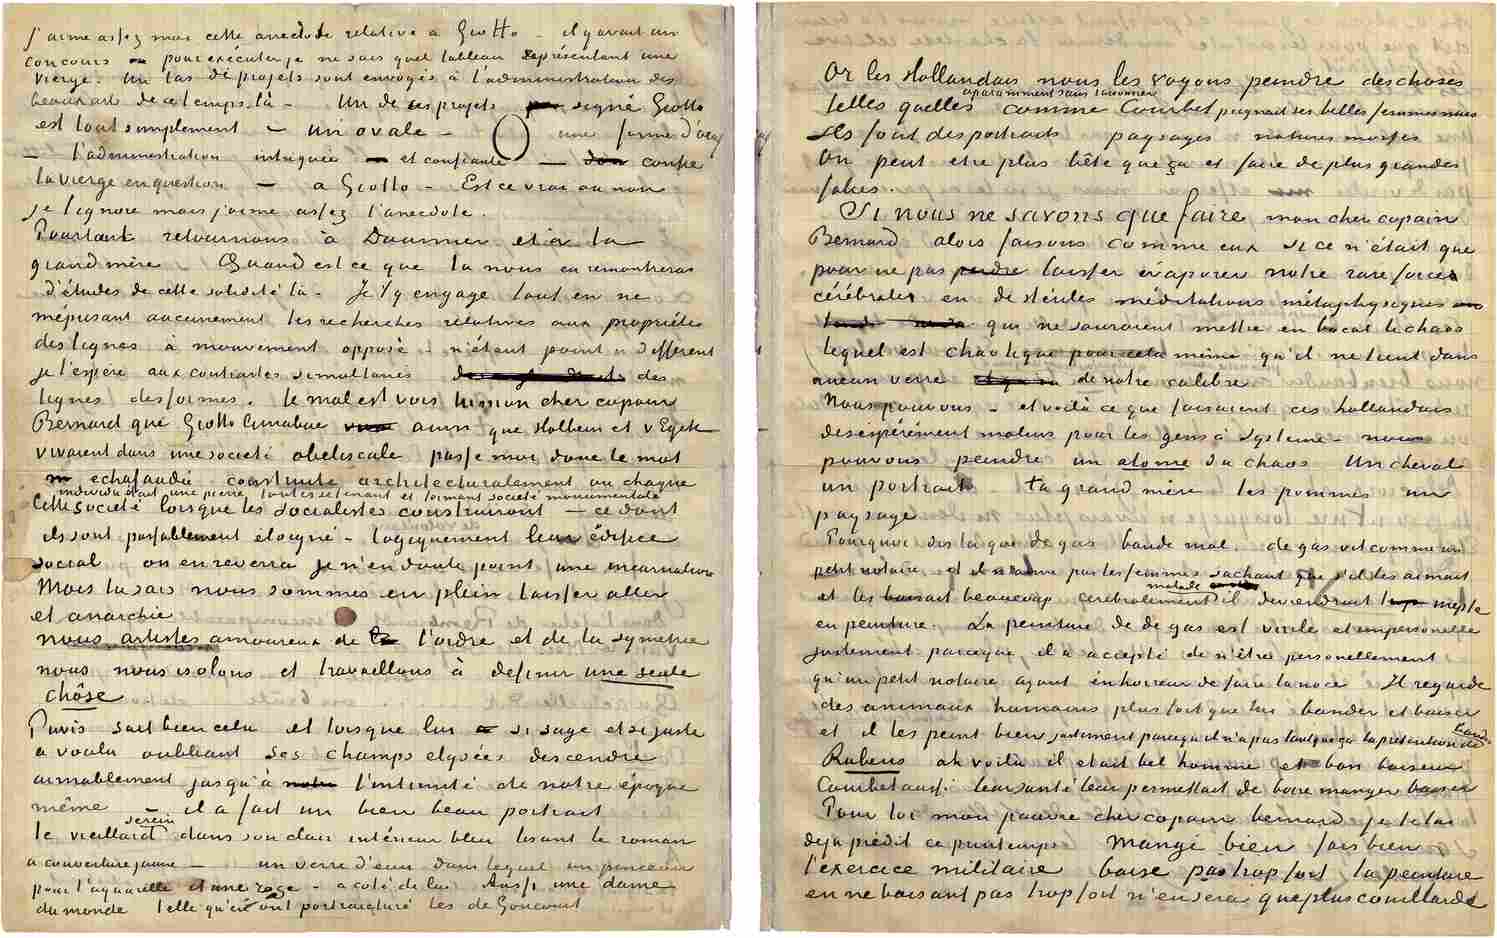 J'aime assez moi cette anecdote relative à Giotto – il y avait un
concours pour exécuter je ne sais quel tableau représentant une
vierge. Un tas de projets sont envoyés à l'administration des
beaux arts de ce temps là – Un de ces projets signé Giotto
est tout simplement – un ovale – une forme d'œuf
– l'administration intriguée et confiante – confie
la vierge en question – a Giotto – Est ce vrai ou non
je l'ignore mais j'aime assez l'anecdote.
Pourtant retournons à Daumier et à ta
grand mère Quand est ce que tu nous en remontreras
d'études de cette solidité là – Je t'y engage tout en ne
méprisant aucunement tes recherches relatives aux propriétés
des lignes à mouvement opposé – n'étant point indifferent
je l'espère aux contrastes simultanés des
lignes des formes. le mal est vois tu mon cher copain
Bernard que Giotto Cimabue ainsi que Holbein et v Eyck
vivaient dans une societé obeliscale passe moi donc le mot
echafaudée construite architecturalement ou chaque
individu était une pierre toutes se tenant et formant société monumentale
Cette société lorsque les socialistes construiront – ce dont
ils sont passablement éloigné – logiquement leur édifice
social on en reverra je n'en doute point une incarnation
Mais tu sais nous sommes en plein laisser aller
et anarchie
nous artistes amoureux de l'ordre et de la symetrie
nous nous isolons et travaillons à definir une seule
chôse
Puvis sait bien cela et lorsque lui si sage et si juste
a voulu oubliant ses champs elysées descendre
aimablement jusqu'à l'intimité de notre époque
même – il a fait un bien beau portrait
serein
le vieillard dans son clair intérieur bleu lisant le roman
a couverture jaune – un verre d'eau dans lequel un pinceau
pour l'aquarelle et une rose – a coté de lui Aussi une dame
du monde telle qu'en ont portraicturé les de Goncourt
Or les Hollandais nous les voyons peindre des choses
apparamment sans raisonner
telles quelles comme Courbet peignait ses belles femmes nues
Ils font des portraits paysages natures mortes
On peut etre plus bête que ça et faire de plus grandes
folies.
Si nous ne savons que faire mon cher copain
Bernard alors faisons comme eux si ce n'était que
pour ne pas laisser évaporer notre rare forces
cérébrales en de stériles méditations métaphysiques
qui ne sauraient mettre en bocal le chaos
lequel est chaotique pour cela même qu'il ne tient dans
aucun verre de notre calibre
Nous pouvons – et voilà ce que faisaient ces hollandais
désespérément malins pour les gens à système – nous
pouvons peindre un atome du chaos Un cheval
un portrait ta grand mère les pommes un
paysage
Pourquoi dis tu que de gas bande mal. de gas vit comme un
petit notaire et il n'aime pas les femmes sachant que s'il les aimait
malade
et les baisait beaucoup cerebralement il deviendrait inepte
en peinture. La peinture de de gas est virile et impersonelle
justement parceque il a accepté de n'être personellement
qu'un petit notaire ayant en horreur de faire la noce Il regarde
des animaux humaines plus fort que lui bander et baiser
et il les peint bien justement parcequ'il n'a pas tant que ça la prétention de
bander
Rubens ah voilà il etait bel homme et bon baiseur
Courbet aussi leur santé leur permettait de boire manger baiser
Pour toi mon pauvre cher copain bernard je te l'ai
deja prédit ce printemps mange bien fais bien
l'exercice militaire baise pas trop fort ta peinture
en ne baisant pas trop fort n'en sera que plus couillarde